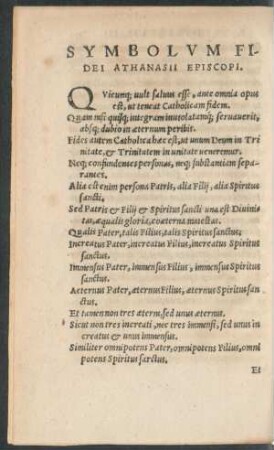 SYMBOLVM FI-
DEI ATHANASII EPISCOPI.
QVicunq; uult saluus esse, ante omnia opus
est, ut teneat Catholicam fidem.
Quam nisi quisq; integram inuiolatamq; seruauerit,
absq; dubio in aeternum peribit.
Fides autem Catholica haec est, ut unum Deum in Tri
nitate, & Trinitatem in unitate ueneremur.
Neq; confundentes personas, neq; substantiam sepa-
rantes.
Alia est enim persona Patris, alia Filij, alia Spiritus
sancti.
Sed Patris & Filij & Spiritus sancti una est Diuini-
tas, aequalis gloria, coaeterna maiestas.
Qualis Pater, talis Filius, talis Spiritus sanctus.
Increatus Pater, increatus Filius, increatus Spiritus
sanctus.
Immensus Pater, immensus Filius, immensus Spiritus
sanctus.
Aeternus Pater, aeternus Filius, aeternus Spiritus san
ctus.
Et tamen non tres aeterni, sed unus aeternus.
Sicut non tres increati, nec tres immensi, sed unus in
creatus & unus immensus.
Similiter omnipotens Pater, omnipotens Filius, omni
potens Spiritus sanctus.
Et